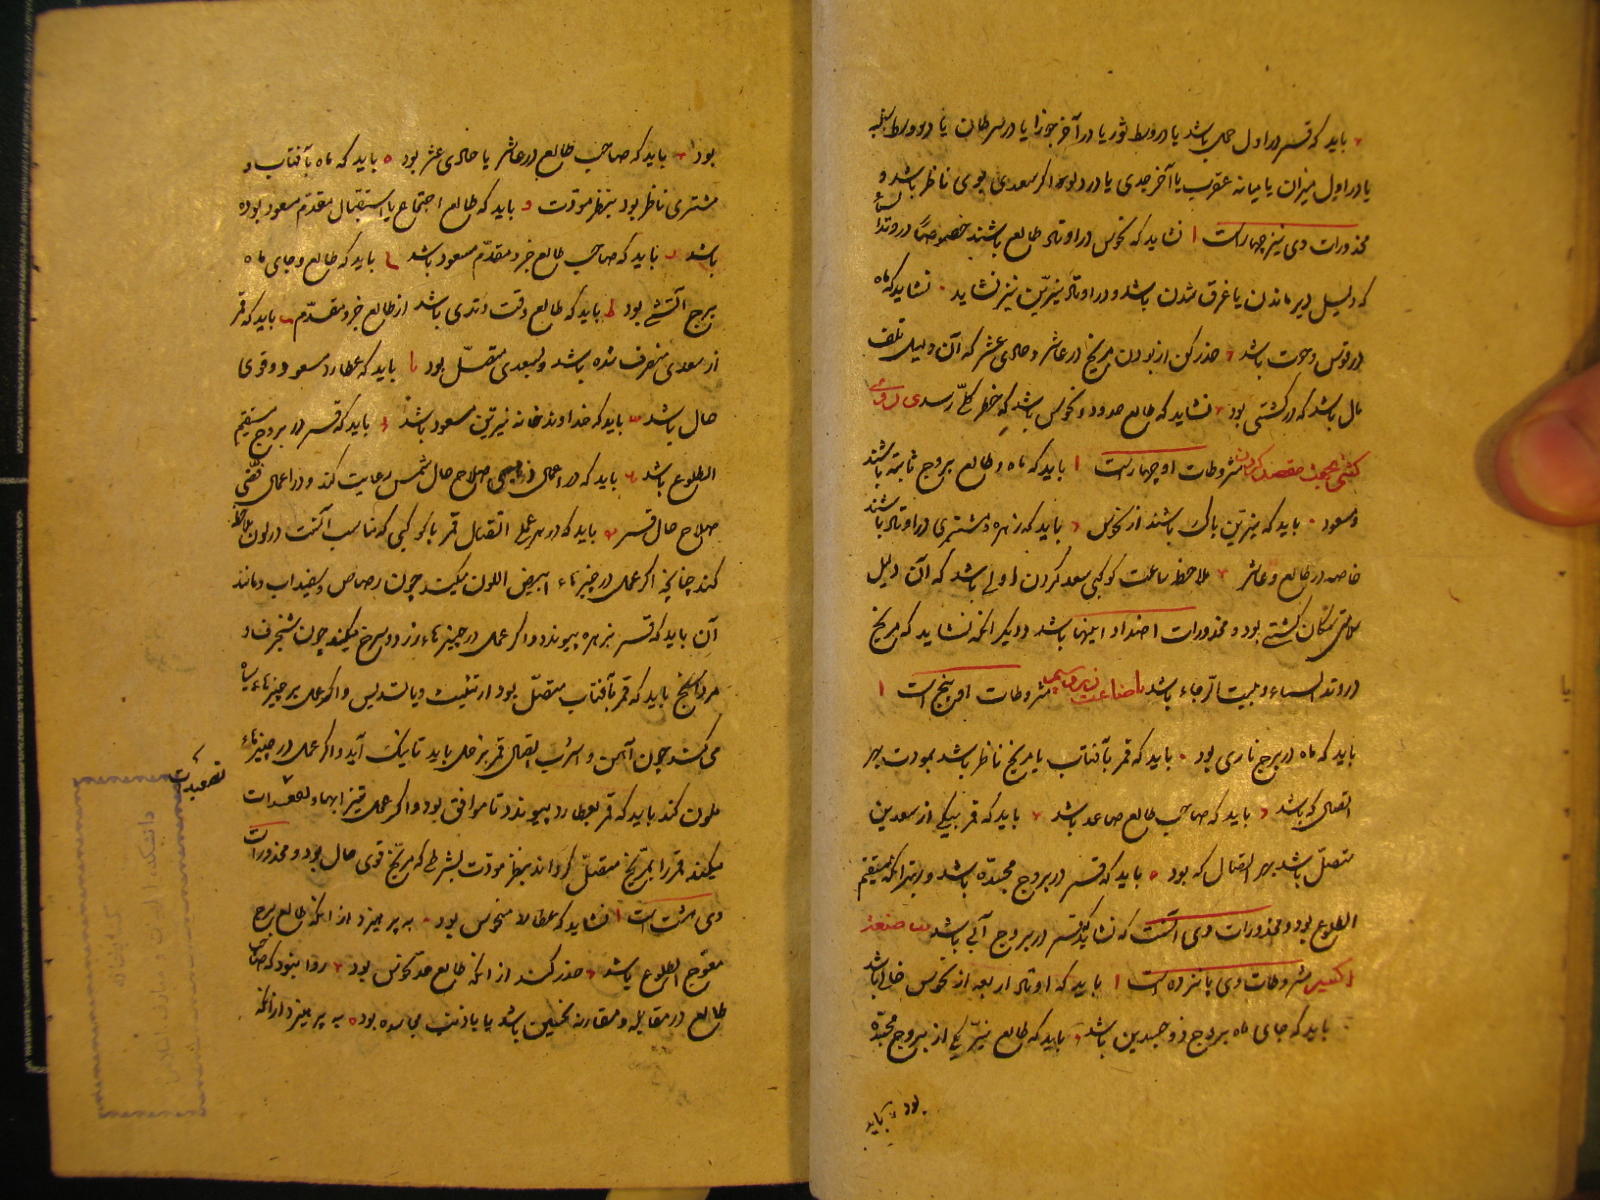 باید که قمر در اول حمل باشد یا در وسط ثور یا در آخر جوزا یا در سرطان یا در وسط سنبله
یا در اول میزان یا میانه عقرب یا آخر جدی یا در دلو و اگر سعدی بوی ناظر باشد و
محذورات وی نیز چهار است ا نشاید که نحوس در اوتاد طالع باشند خصوصا در وتد السماء
که دلیل دیر ماندن یا غرق شدن باشد و در اوتاد نیرین نیز نشاید نشاید که ماه
در قوس و حوت باشد حذر کن از بودن مریخ در عاشر و حادی عشر که آن دلیل تلف
مال باشد که در کشتی بود نشاید که طالع حدود نحوس باشد که خطر کلی رسد
کشتی بجهت مقصد کردن مشروطات او چهار است ا باید که ماه و طالع بروج ثابته باشند
و مسعود باید که نیرین پاک باشند از نحوس باید که زهره و مشتری در اوتاد باشند
خاصه در طالع و عاشر ملاحظه ساعت کوکبی سعد کردن اولی باشد که آن دلیل
سلامتی سکان کشتی بود و محذورات اضداد اینها باشد و دیگر آنکه نشاید که مریخ
در وتد السماء و بیت الرجاء باشد مشروطات او پنج است ا
باید که ماه در برج ناری بود باید که قمر بآفتاب یا مریخ ناظر باشد بمودت بهر
اتصال که باشد باید که صاحب طالع صاعد باشد باید که قمر بیکی از سعدین
متصل باشد بهر اتصال که بود باید که قمر در بروج مجسده باشد و بهتر آنکه مستقیم
الطلوع بود و محذورات وی آنست که نشاید که قمر در بروج آبی باشد صنعة
اکسیر مشروطات وی پانزده است ا باید که اوتاد اربعه از نحوس خالی باشد
باید که جای ماه بروج ذو جسدین باشد باید که طالع نیز یکی از بروج مجسده
بود باید
بود باید که صاحب طالع در عاشر یا حادی عشر بود ه باید که ماه بآفتاب و
مشتری ناظر بود بنظر مودت و باید که طالع اجتماع یا استقبال مقدم مسعود بوده
باشد باید که صاحب طالع جزو مقدم مسعود باشد باید که طالع و جای ماه
برج آتشی بود ط باید که طالع وقت وتدی باشد از طالع جزو مقدم باید که قمر
از سعدی منصرف شده باشد و بسعدی متصل بود یا باید که عطارد مسعود و قوی
حال باشد باید که خداوند خانه نیرین مسعود باشد باید که قمر در بروج مستقیم
الطلوع باشد باید که در اعمال ذهبی صلاح حال شمس رعایت کند و در اعمال فضی
صلاح حال قمر باید که در هر عملی اتصال قمر با کوکبی که مناسب آنست در لون ملاحظه
کند چنانچه اگر عمل در چیزهاء ابیض اللون میکند چون رصاص و سفیداب و مانند
آن باید که قمر بزهره پیوندد و اگر عمل در چیزهاء زرد و سرخ میکند چون شنجرف و
مرداسنج باید که قمر بآفتاب متصل بود از تثلیث و یا تسدیس و اگر عمل بر چیزهاء سیاه
می کند چون آهن و اسرب اتصال قمر بزحل باید تا نیک آید و اگر عمل در چیزهاء
ملون کند باید که قمر بعطارد پیوندد تا موافق بود و اگر عمل تیزابها و تصعیدات
تصعیدات
میکند قمر را بمریخ متصل گرداند بنظر مودت بشرطی که مریخ قوی حال بود و محذورات
وی هشت است ا نشاید که عطارد منحوس بود به پرهیزد از آنکه طالع برج
معوج الطلوع باشد حذر کند از آنکه طالع حد نحوس بود روا نبود که صاحب
طالع در مقابله و مقارنه نحسین باشد یا با ذنب مجاسده بود ه به پرهیزد از آنکه